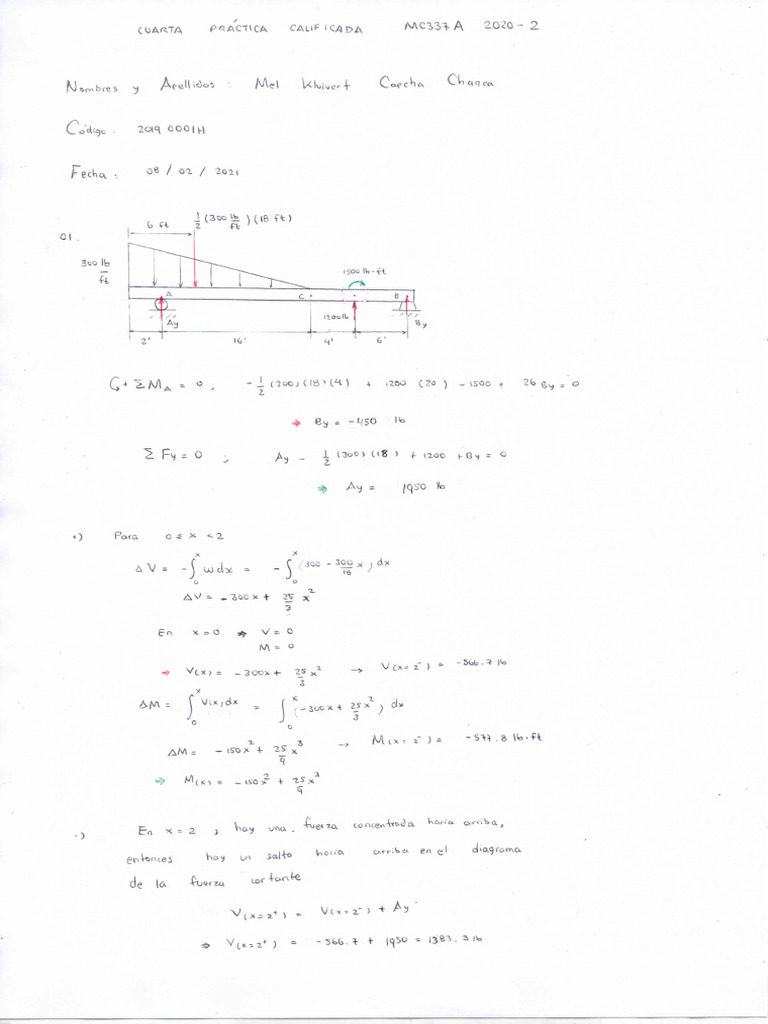 CUARTA PRÁCTICA CALIFICADA MC337A 2020-2
Nombres y Apellidos: Mel Kluivert Carcha Chanca
Código: 2019 0001H
Fecha: 08/02/2021
6 ft 1/2 (300 lb/ft)(18 ft)
01.
300 lb/ft
1500 lb-ft
A C B
Ay 1200 lb By
2' 16' 4' 6'
↺+ ΣM_A = 0; -1/2 (300)(18)(4) + 1200 (20) - 1500 + 26 By = 0
⇒ By = -450 lb
ΣFy = 0 ; Ay - 1/2 (300)(18) + 1200 + By = 0
⇒ Ay = 1950 lb
•) Para 0 ≤ x < 2
ΔV = -∫₀ˣ w dx = -∫₀ˣ (300 - 300/18 x) dx
ΔV = -300x + 25/3 x²
En x=0 ⇒ V=0
M=0
⇒ V(x) = -300x + 25/3 x² → V(x=2⁻) = -566.7 lb
ΔM = ∫₀ˣ V(x)dx = ∫₀ˣ (-300x + 25/3 x²) dx
ΔM = -150x² + 25/9 x³ → M(x=2⁻) = -577.8 lb.ft
⇒ M(x) = -150x² + 25/9 x³
•) En x=2, hay una fuerza concentrada hacia arriba,
entonces hay un salto hacia arriba en el diagrama
de la fuerza cortante
V(x=2⁺) = V(x=2⁻) + Ay
⇒ V(x=2⁺) = -566.7 + 1950 = 1383.3 lb